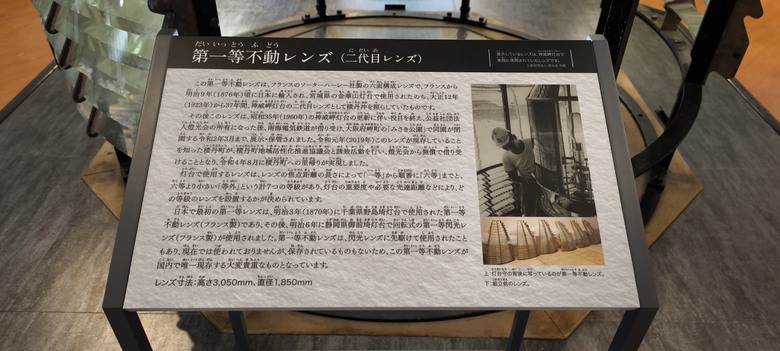 だいいっとうふどう
にだいめ
第一等不動レンズ（二代目レンズ）
展示しているレンズは、神威岬灯台で
実際に使用されていたレンズです。
この第一等不動レンズは、フランスのソーターハーレー社製の六面構成レンズで、フランスから
明治9年（1876年）頃に日本に輸入され、宮城県の金華山灯台で使用されたのち、大正12年
（1923年）から37年間、神威岬灯台の二代目レンズとして積丹沖を照らしていたものです。
その後このレンズは、昭和35年（1960年）の神威岬灯台の更新に伴い役目を終え、公益社団法
人燈光会の所有になった後、南海電気鉄道が借り受け、大阪府岬町の「みさき公園」で同園が閉
園する令和2年3月まで、展示・保管されました。令和元年（2019年）このレンズが現存していること
を知った積丹町が、積丹町地域活性化推進協議会と誘致活動を行い、燈光会から無償で借り受
けることとなり、令和4年8月に積丹町への里帰りが実現しました。
灯台で使用するレンズは、レンズの焦点距離の長さによって「一等」から順番に「六等」までと、
六等より小さい「等外」という計7つの等級があり、灯台の重要度や必要な光達距離などにより、ど
の等級のレンズを設置するかが決められています。
日本で最初の第一等レンズは、明治3年（1870年）に千葉県野島埼灯台で使用された第一等
不動レンズ（フランス製）であり、その後、明治6年に静岡県御前埼灯台で回転式の第一等閃光レ
ンズ（フランス製）が使用されました。第一等不動レンズは、閃光レンズに先駆けて使用されたこと
もあり、現在では使われておりませんが、保存されているものもないため、この第一等不動レンズが
国内で唯一現存する大変貴重なものとなっています。
レンズ寸法：高さ3,050mm、直径1,850mm
上：灯台守の背後に写っているのが第一等不動レンズ。
下：組立前のレンズ。